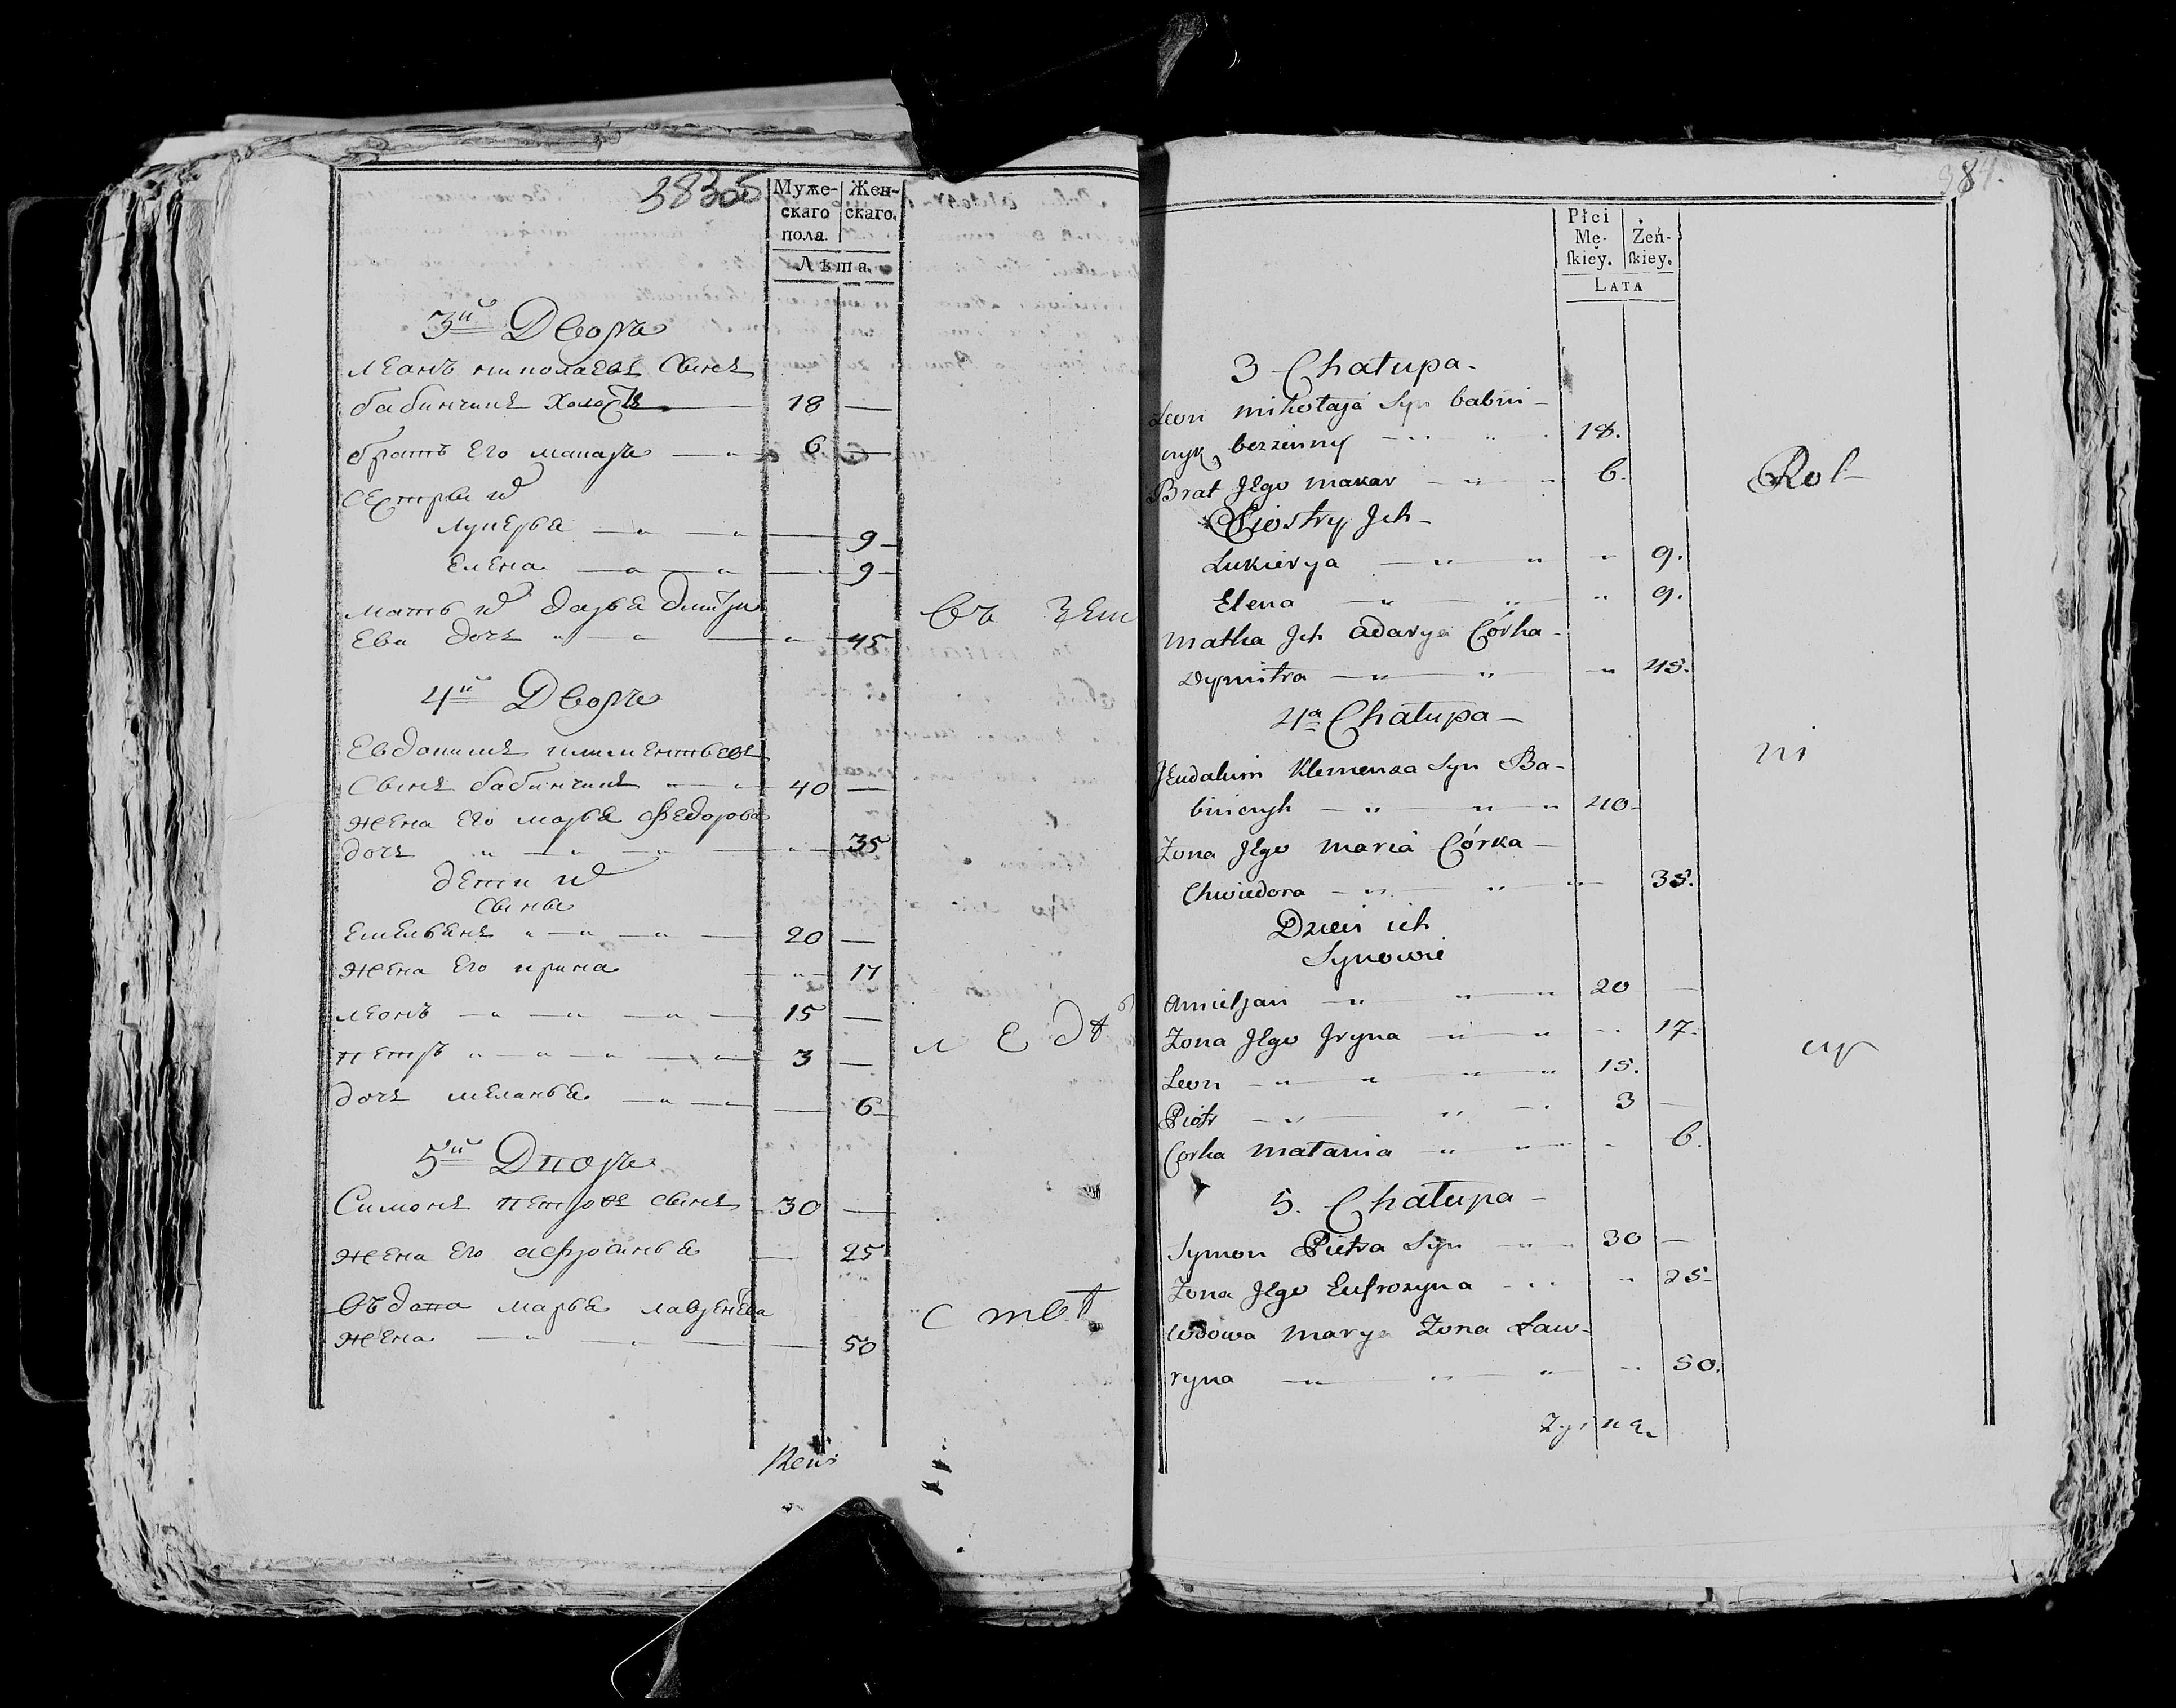 38305
Муже-
скаго
пола.
Жен-
скаго.
Лѣта.
3й Дворъ
Леонъ николаевъ Сынъ
бабинчикъ холостъ 18 —
братъ Его макаръ — 6 —
Сестры их
лукерья — 9
Елена — 9
мать их дарья дмитри
Ева дочь — 45
4й Дворъ
Евдокимъ климентьевъ
Сынъ бабинчикъ 40 —
жена Его марья Федорова
дочь — 35
дети их
Сыны
Емельянъ 20 —
жена Его ирина — 17
леонъ — 15 —
петръ — 3 —
дочь меланья — 6
5й Дворъ
Симонъ петровъ Сынъ 30 —
жена Его афросинья — 25
Вдова марья лавренова
жена — 50
Въ
384.
Płci
Mę-
skiey.
Żeń-
skiey.
LATA
3 Chałupa
Leon mikołaja Syn babin-
czyk bezzenny 18.
Brat Jego makar 6.
Siostry Jch
Łukierya 9.
Elena 9.
matka Jch adarya Córka
Dymitra 45.
4a Chałupa
Jeudakim Klemensa Syn Ba-
binczyk 40
Zona Jego maria Córka
Chwiedora 35.
Dzieci ich
Synowie
Amieljan 20 —
Zona Jego Jryna 17.
Leon 15.
Piotr 3 —
Corka małania 6.
5. Chałupa
Symon Pietra Syn 30 —
Zona Jego Eufrozyna 25
Wdowa marya Zona Ław-
ryna 50.
Rol
ni
cy